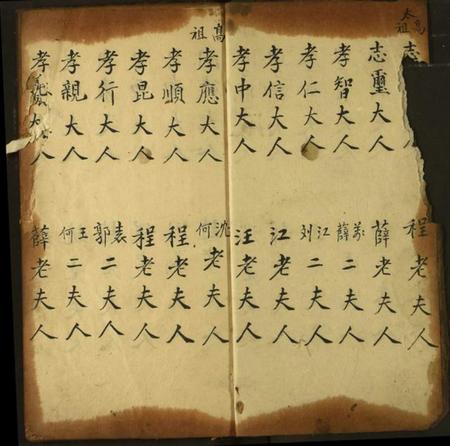 太高祖
志 人 程老夫人
志璽大人 薛老夫人
孝智大人 薛二夫人
孝仁大人 江刘二夫人
孝信大人 江老夫人
孝中大人 汪老夫人
高祖
孝應大人 沈何老夫人
孝順大人 程老夫人
孝昆大人 程老夫人
孝行大人 袁郭二夫人
孝親大人 王何二夫人
孝 大人 薛老夫人